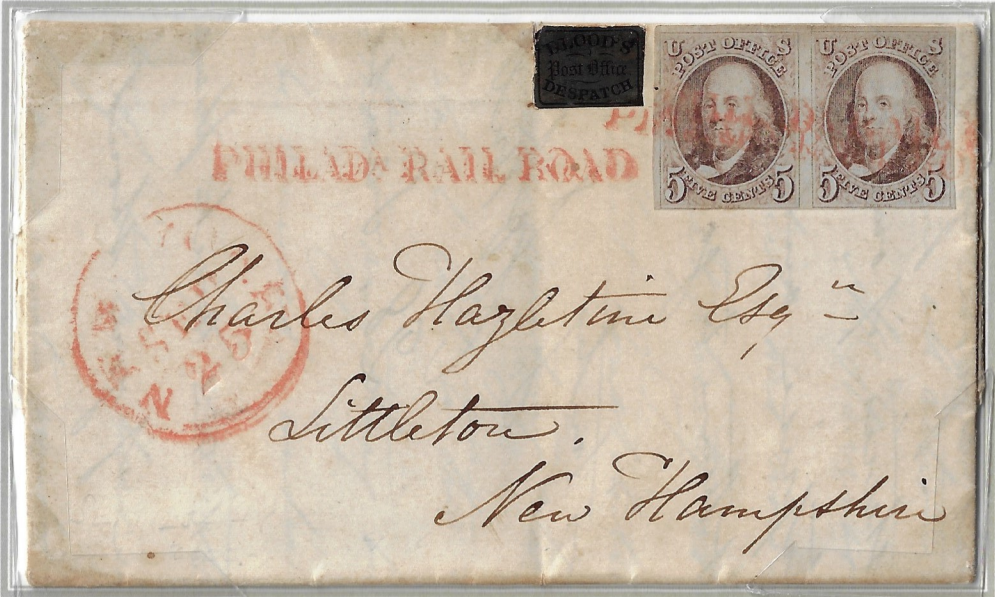 BLOOD'S
Post Office
DESPATCH
U S
POST OFFICE
5 FIVE CENTS 5
U S
POST OFFICE
5 FIVE CENTS 5
PHILADA RAIL ROAD
NEW YORK
SEP
25
Charles Hazletine Esqr
Littleton.
New Hampshire